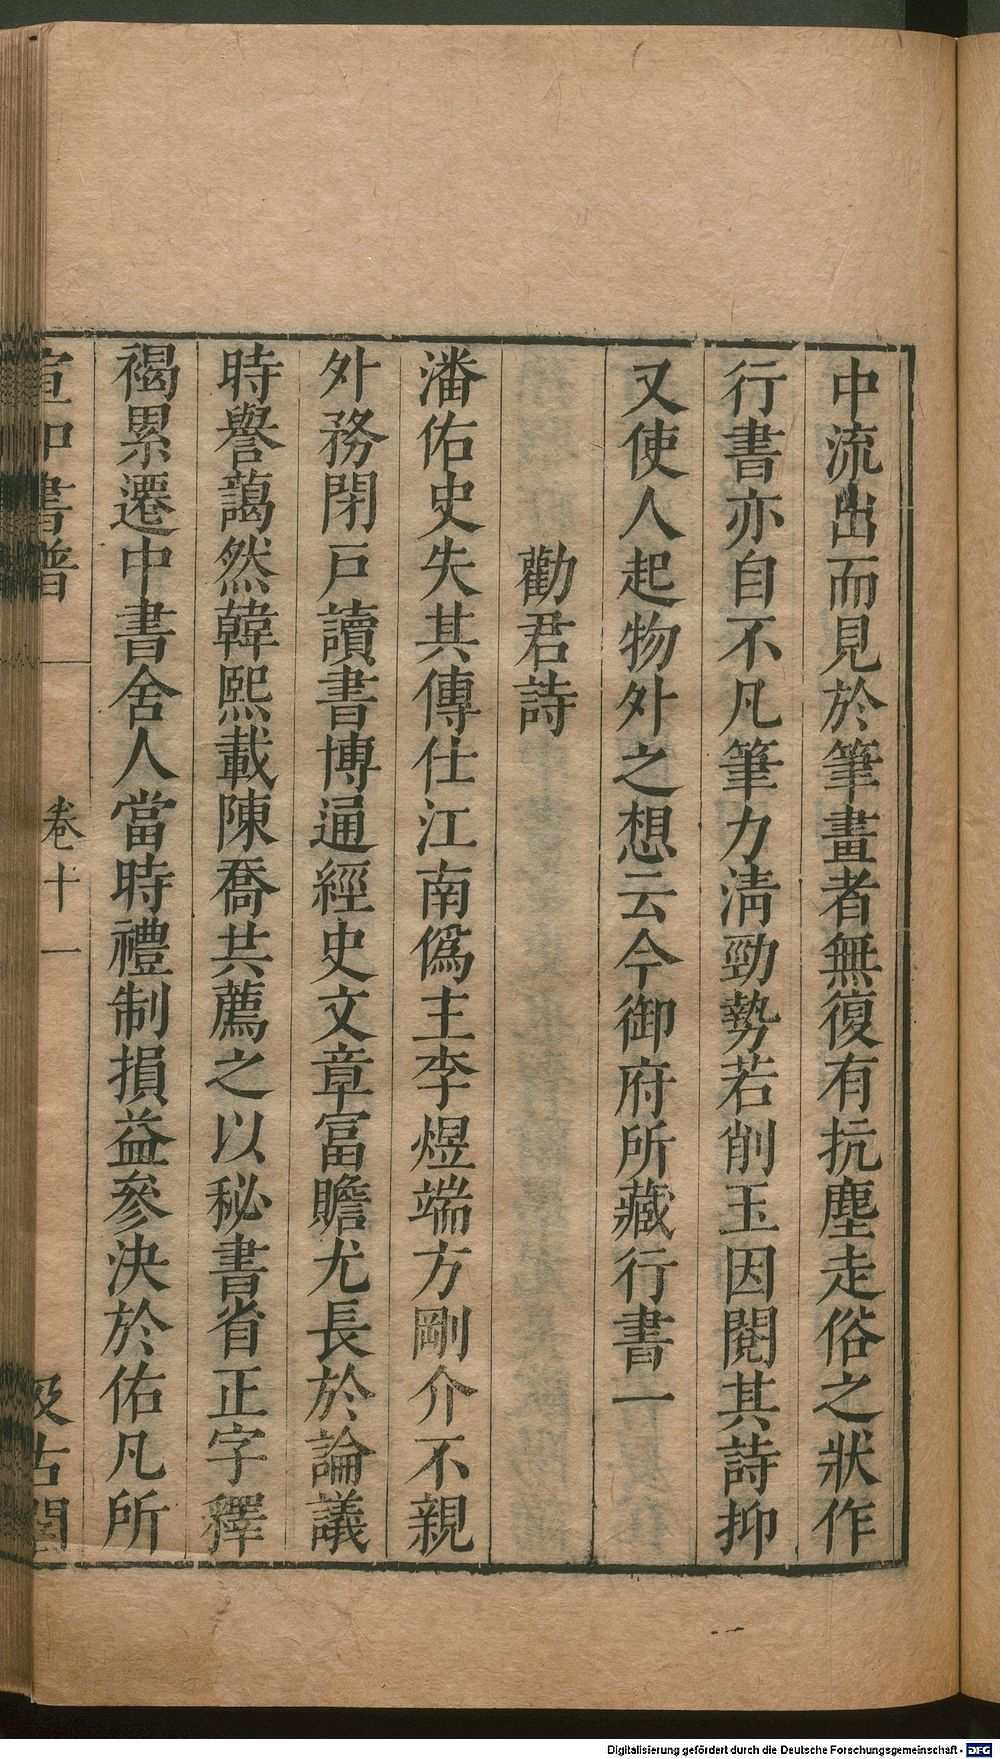 中流出而見於筆畫者無復有抗塵走俗之狀作
行書亦自不凡筆力淸勁勢若削玉因閱其詩抑
又使人起物外之想云今御府所藏行書一
勸君詩
潘佑史失其傳仕江南僞主李煜端方剛介不親
外務閉戸讀書博通經史文章富贍尤長於論議
時譽藹然韓熙載陳喬共薦之以秘書省正字釋
褐累遷中書舍人當時禮制損益參決於佑凡所
宣和書譜 卷十一 汲古閣
Digitalisierung gefördert durch die Deutsche Forschungsgemeinschaft - DFG